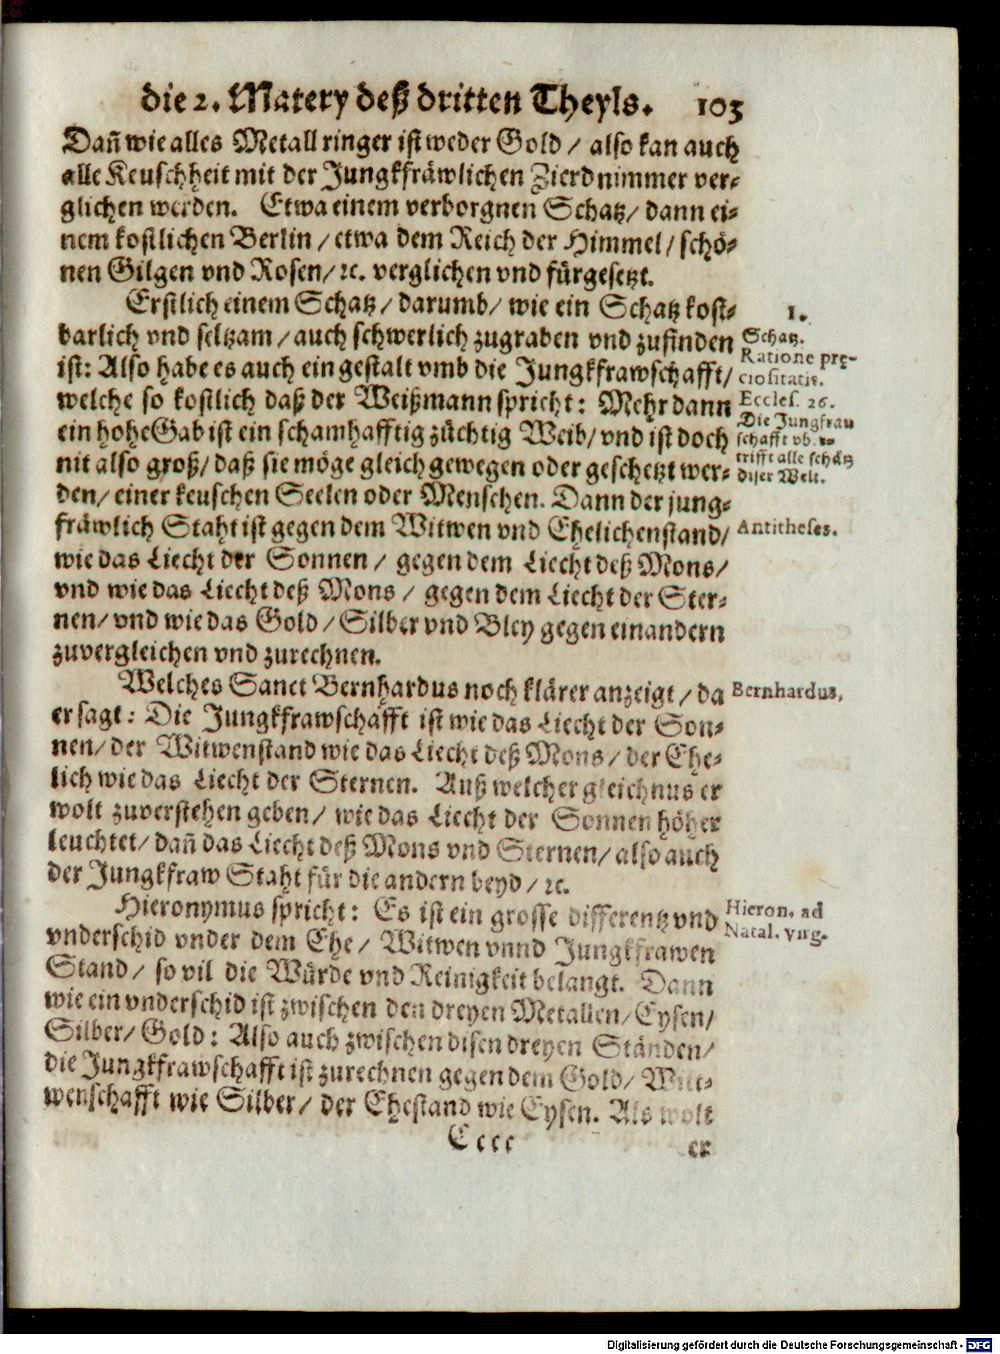 die 2. Matery deß dritten Theyls. 103
Dañ wie alles Metall ringer ist weder Gold / also kan auch
alle Keuschheit mit der Jungkfräwlichen Zierd nimmer ver-
glichen werden. Etwa einem verborgnen Schatz / dann ei-
nem kostlichen Berlin / etwa dem Reich der Himmel / schö-
nen Gilgen vnd Rosen / ꝛc. verglichen vnd fürgesetzt.
Erstlich einem Schatz / darumb / wie ein Schatz kost-
1.
barlich vnd seltzam / auch schwerlich zugraden vnd zufinden
Schatz.
ist: Also habe es auch ein gestalt vmb die Jungkfrawschafft /
Ratione pre-
ciositatis.
welche so kostlich daß der Weißmann spricht: Mehr dann
Eccles. 26.
ein hohe Gab ist ein schamhafftig züchtig Weib / vnd ist doch
Die Jungfrau
schafft vb.
nit also groß / daß sie möge gleich gewegen oder geschetzt wer-
trifft alle schätz
diser Welt.
den / einer keuschen Seelen oder Menschen. Dann der jung-
fräwlich Staht ist gegen dem Witwen vnd Ehelichenstand /
Antitheses.
wie das Liecht der Sonnen / gegen dem Liecht deß Mons /
vnd wie das Liecht deß Mons / gegen dem Liecht der Ster-
nen / vnd wie das Gold / Silber vnd Bley gegen einandern
zuvergleichen vnd zurechnen.
Welches Sanct Bernhardus noch klärer anzeigt / da
Bernhardus.
er sagt: Die Jungkfrawschafft ist wie das Liecht der Son-
nen / der Witwenstand wie das Liecht deß Mons / der Ehe-
lich wie das Liecht der Sternen. Auß welcher gleichnus er
wolt zuverstehen geben / wie das Liecht der Sonnen höher
leuchtet / dañ das Liecht deß Mons vnd Sternen / also auch
der Jungkfraw Staht für die andern beyd / ꝛc.
Hieronymus spricht: Es ist ein grosse differentz vnd
Hieron. ad
Natal. virg.
vnderschid vnder dem Ehe / Witwen vnnd Jungkfrawen
Stand / so vil die Würde vnd Reinigkeit belangt. Dann
wie ein vnderschid ist zwischen den dreyen Metallen / Eysen /
Silber / Gold: Also auch zwischen disen dreyen Ständen /
die Jungkfrawschafft ist zurechnen gegen dem Gold / Witt-
wenschafft wie Silber / der Ehestand wie Eysen. Als wolt
Cccc er
Digitalisierung gefördert durch die Deutsche Forschungsgemeinschaft - DFG